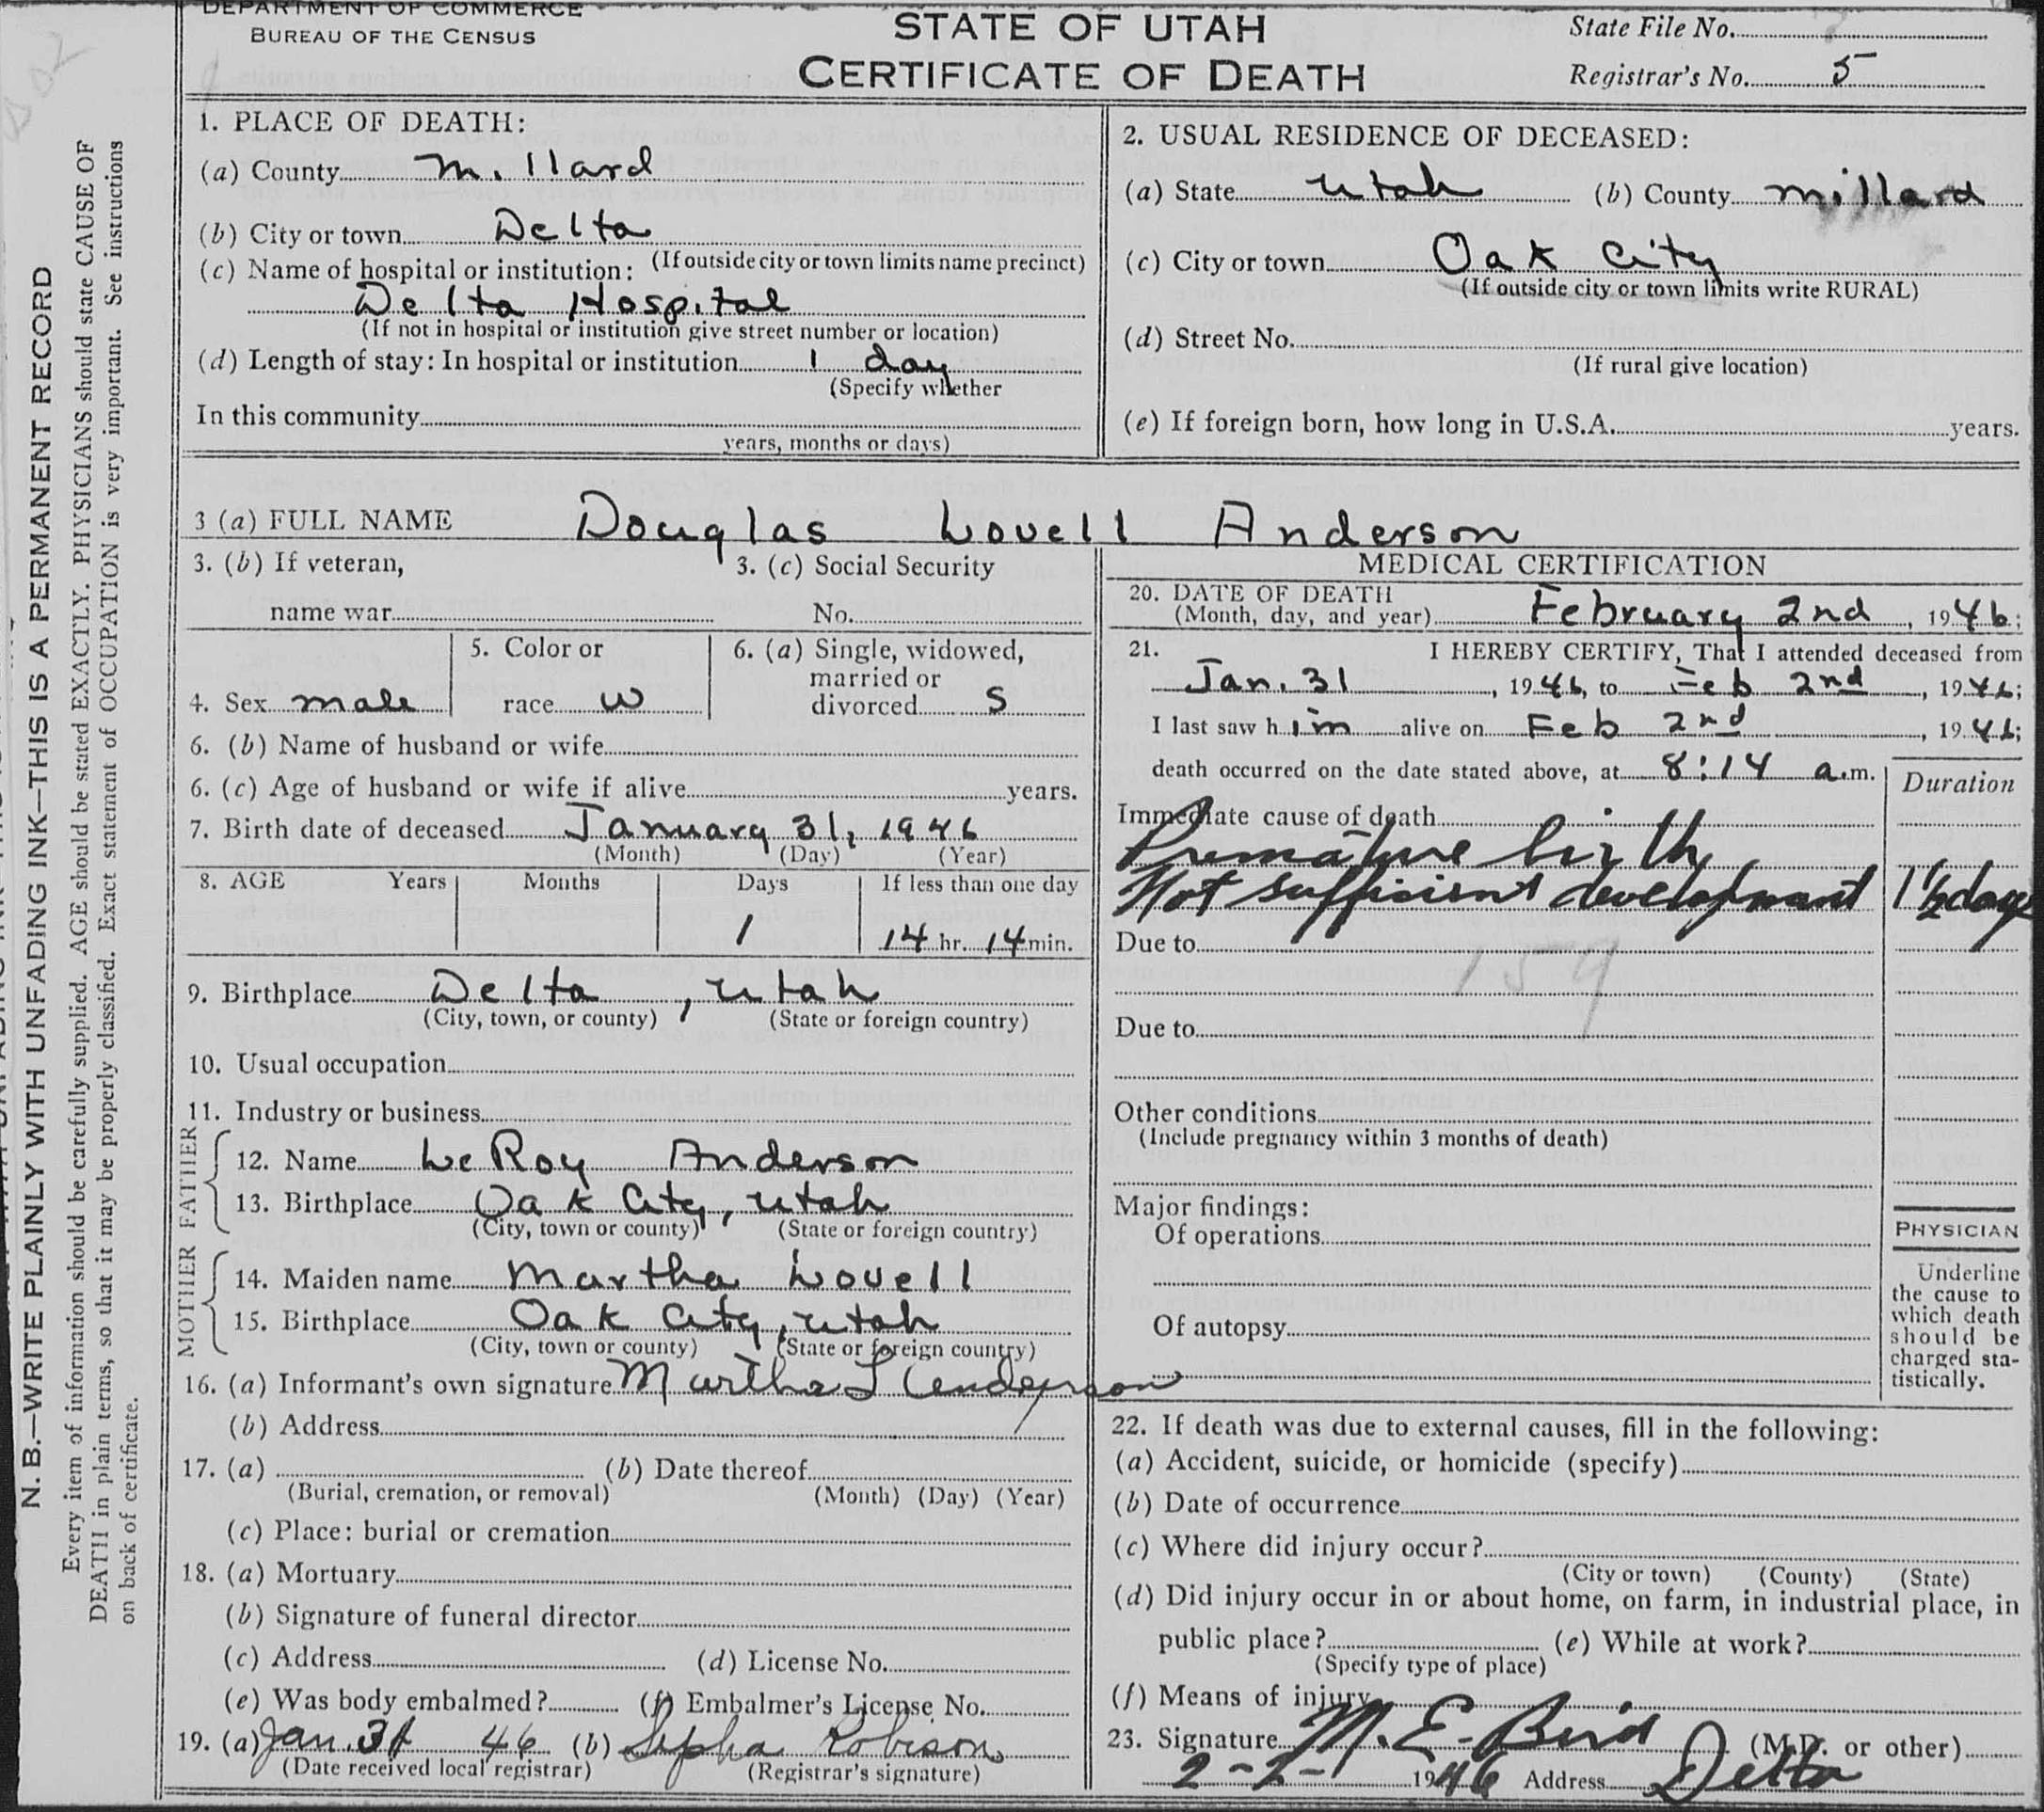 DEPARTMENT OF COMMERCE
BUREAU OF THE CENSUS
STATE OF UTAH
CERTIFICATE OF DEATH
State File No.
Registrar's No. 5
N. B.—WRITE PLAINLY WITH UNFADING INK—THIS IS A PERMANENT RECORD
Every item of information should be carefully supplied. AGE should be stated EXACTLY. PHYSICIANS should state CAUSE OF
DEATH in plain terms, so that it may be properly classified. Exact statement of OCCUPATION is very important. See instructions
on back of certificate.
1. PLACE OF DEATH:
(a) County Millard
(b) City or town Delta
(If outside city or town limits name precinct)
(c) Name of hospital or institution:
Delta Hospital
(If not in hospital or institution give street number or location)
(d) Length of stay: In hospital or institution 1 day
(Specify whether
In this community
years, months or days)
2. USUAL RESIDENCE OF DECEASED:
(a) State Utah (b) County Millard
(c) City or town Oak City
(If outside city or town limits write RURAL)
(d) Street No.
(If rural give location)
(e) If foreign born, how long in U.S.A. years.
3 (a) FULL NAME Douglas Lovell Anderson
3. (b) If veteran,
name war
3. (c) Social Security
No.
4. Sex male
5. Color or
race W
6. (a) Single, widowed,
married or
divorced S
6. (b) Name of husband or wife
6. (c) Age of husband or wife if alive years.
7. Birth date of deceased January 31, 1946
(Month) (Day) (Year)
8. AGE Years Months Days If less than one day
1 14 hr. 14 min.
9. Birthplace Delta, Utah
(City, town, or county) (State or foreign country)
10. Usual occupation
11. Industry or business
FATHER
12. Name LeRoy Anderson
13. Birthplace Oak City, Utah
(City, town or county) (State or foreign country)
MOTHER
14. Maiden name Martha Lovell
15. Birthplace Oak City, Utah
(City, town or county) (State or foreign country)
16. (a) Informant's own signature Martha L Anderson
(b) Address
17. (a) (b) Date thereof
(Burial, cremation, or removal) (Month) (Day) (Year)
(c) Place: burial or cremation
18. (a) Mortuary
(b) Signature of funeral director
(c) Address (d) License No.
(e) Was body embalmed? (f) Embalmer's License No.
19. (a) Jan. 31 46 (b) Sepha Robison
(Date received local registrar) (Registrar's signature)
MEDICAL CERTIFICATION
20. DATE OF DEATH
(Month, day, and year) February 2nd, 1946;
21. I HEREBY CERTIFY, That I attended deceased from
Jan. 31, 1946, to Feb 2nd, 1946;
I last saw him alive on Feb 2nd, 1946;
death occurred on the date stated above, at 8:14 a.m.
Duration
Immediate cause of death
Premature birth
Not sufficient development 1½ days
Due to
159
Due to
Other conditions
(Include pregnancy within 3 months of death)
Major findings:
Of operations
Of autopsy
PHYSICIAN
Underline
the cause to
which death
should be
charged sta-
tistically.
22. If death was due to external causes, fill in the following:
(a) Accident, suicide, or homicide (specify)
(b) Date of occurrence
(c) Where did injury occur?
(City or town) (County) (State)
(d) Did injury occur in or about home, on farm, in industrial place, in
public place? (e) While at work?
(Specify type of place)
(f) Means of injury
23. Signature M. E. Bird (M.D. or other)
2-2- 1946 Address Delta